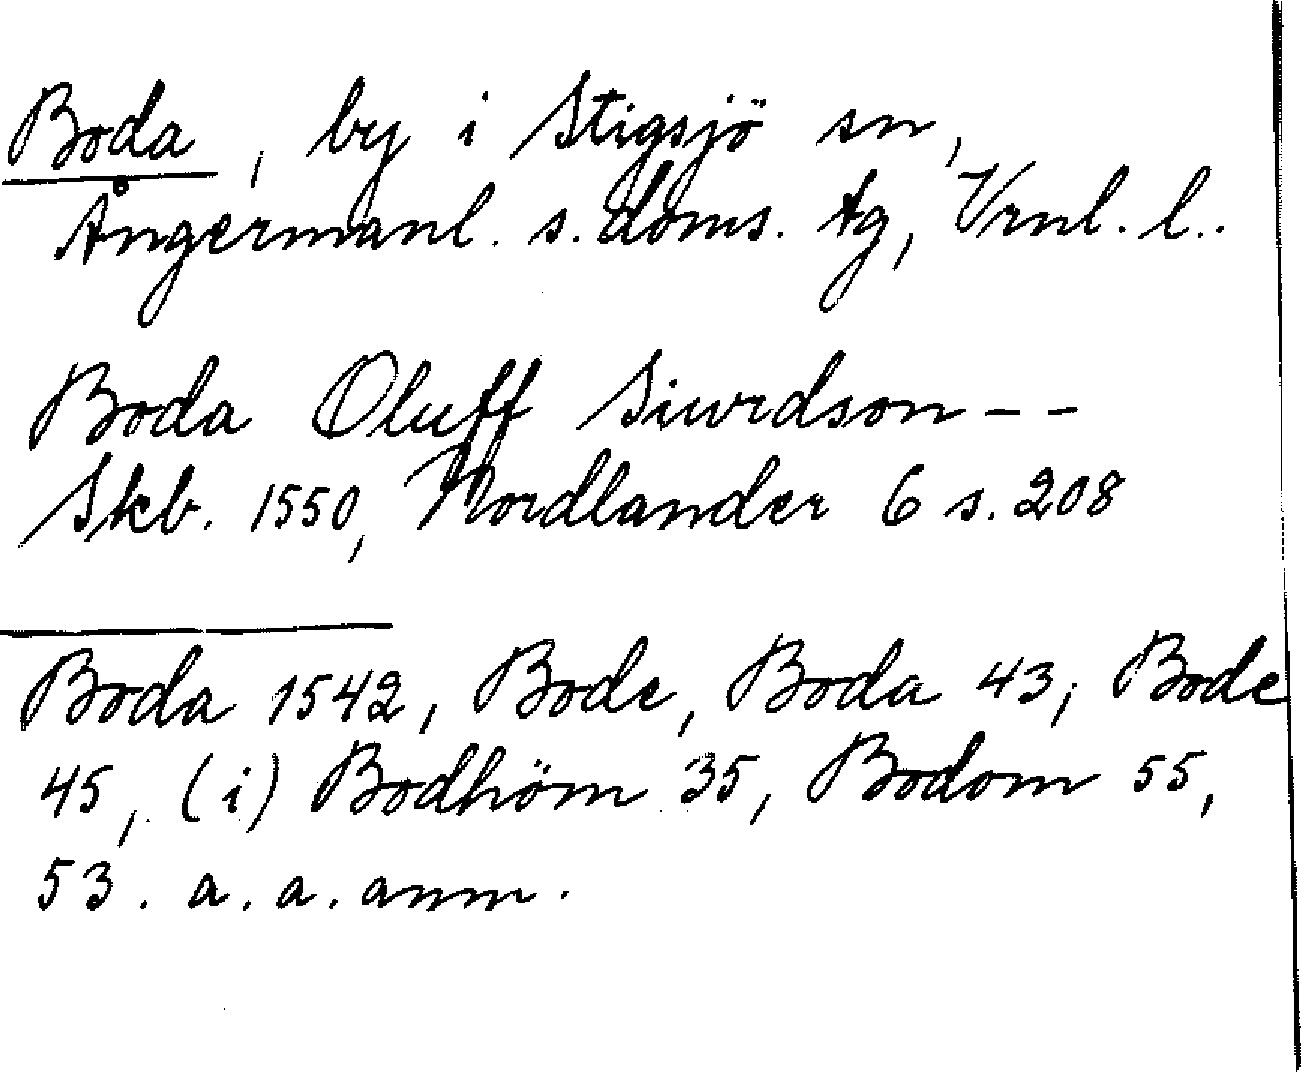 Boda, by i Stigsjö sn,
Ångermanl. s. doms. tg, Vrnl. l..
Boda Oluff Siurdson - -
Skb. 1550, Nordlander 6 s. 208
Boda 1542, Bode, Boda 43, Bode
45, (i) Bodhöm 35, Bodom 55,
53. a. a. anm.